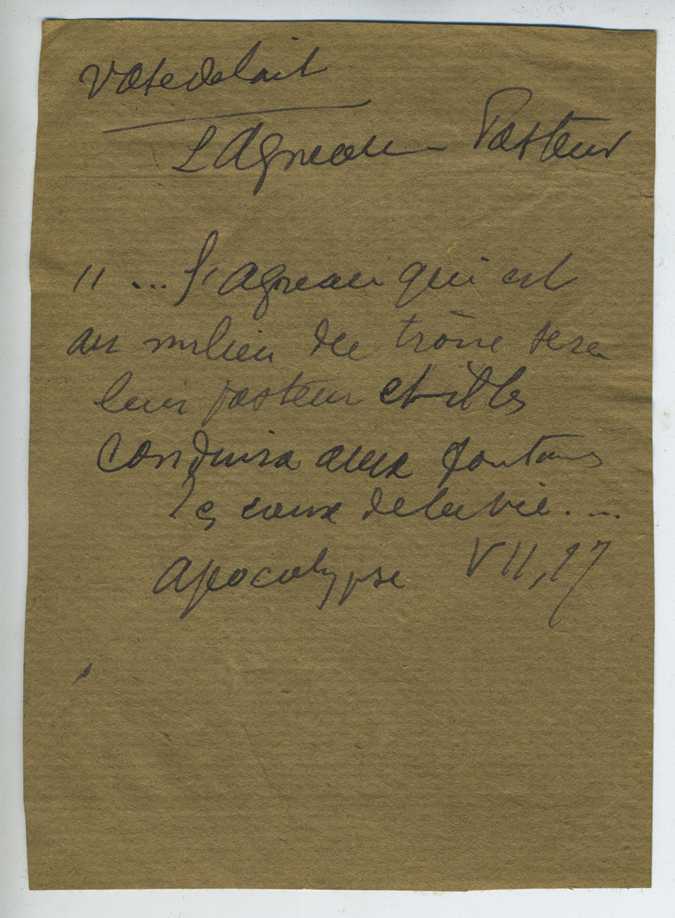 Vase de lait
L'Agneau – Pasteur
"... l'agneau qui est
au milieu du trône sera
leur pasteur et il les
conduira aux fontaines
des eaux de la vie....
Apocalypse VII, 17